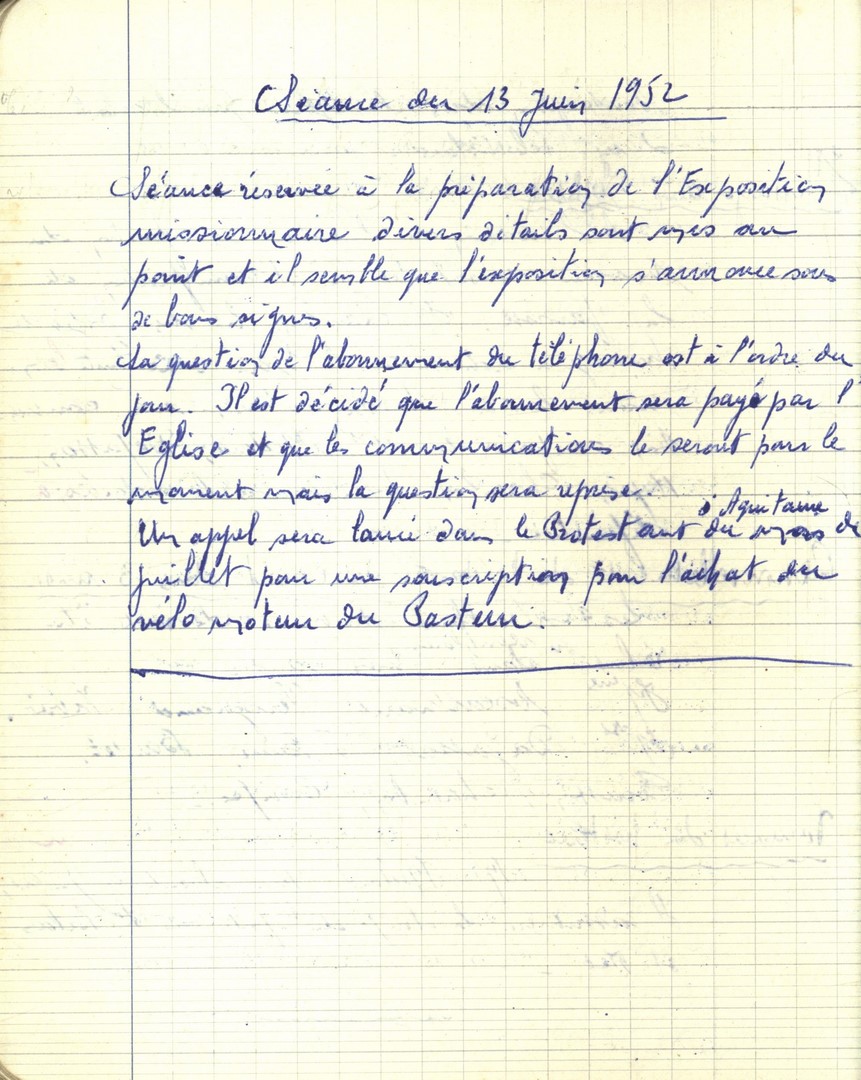 Séance du 13 Juin 1952
Séance réservée à la préparation de l'Exposition
missionnaire divers détails sont mis au
point et il semble que l'exposition s'annonce sous
de bons signes.
La question de l'abonnement du téléphone est à l'ordre du
jour. Il est décidé que l'abonnement sera payé par l'
Eglise et que les communications le seront pour le
moment mais la question sera reprise.
d'Aquitaine
Un appel sera lancé dans le Protestant du mois de
juillet pour une souscription pour l'achat du
vélo moteur du Pasteur.